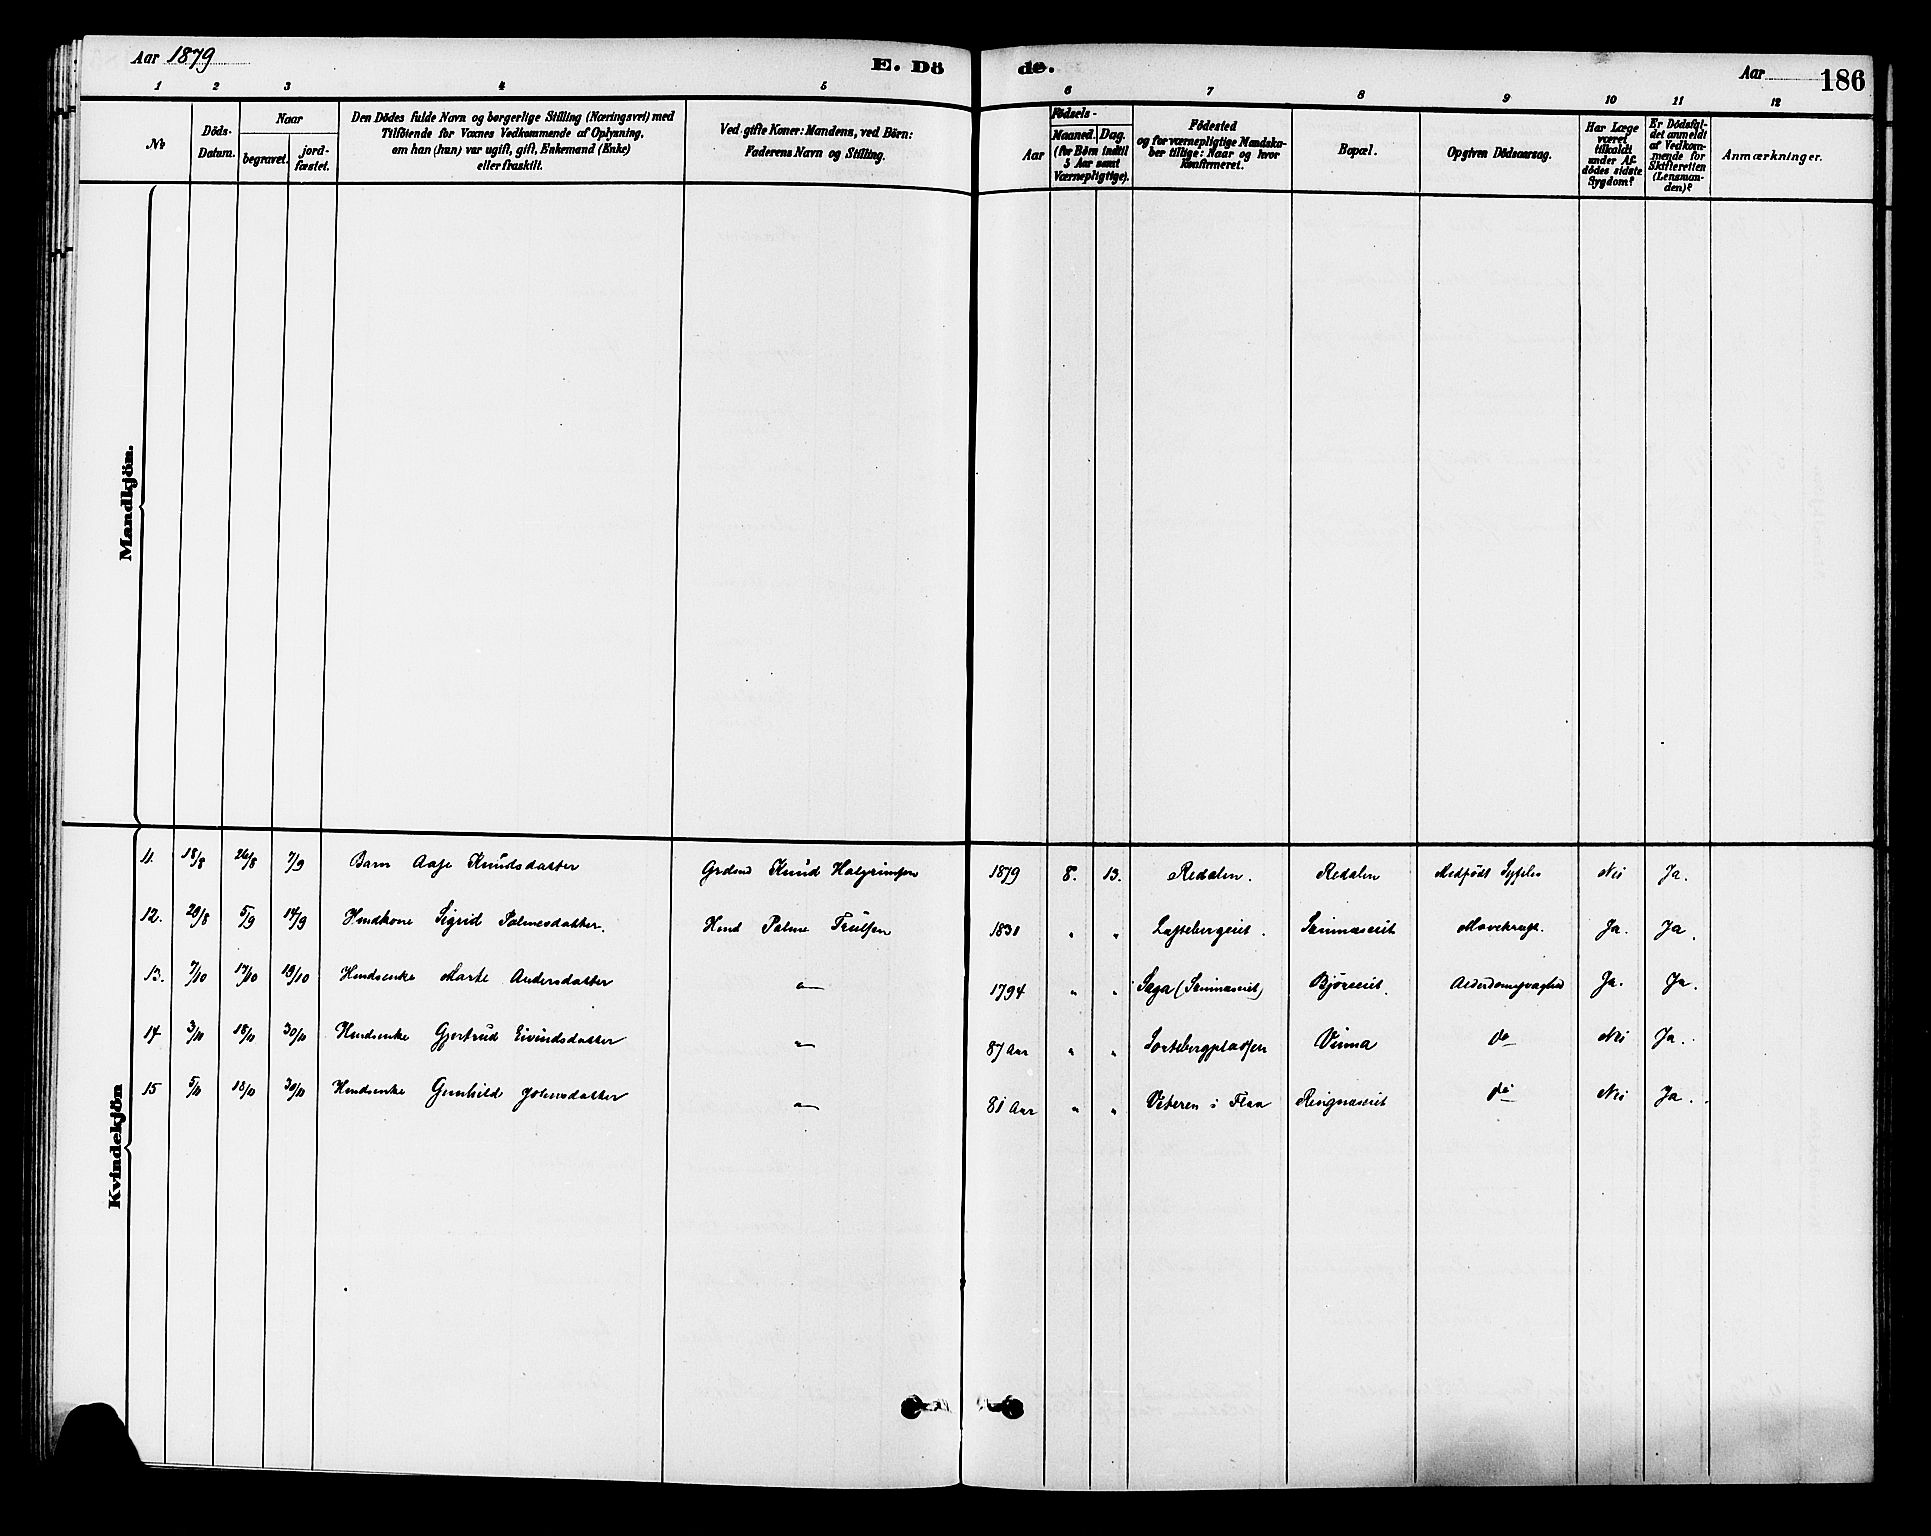 Aar 1879
E. Döde.
Aar 186
1 2 3 4 5 6 7 8 9 10 11 12
No
Döds-Datum.
Naar
begravet.
jordfæstet.
Den Dödes fulde Navn og borgerlige Stilling (Næringsvei) med
Tilföiende for Voxnes Vedkommende af Oplysning,
om han (hun) var ugift, gift, Enkemand (Enke)
eller fraskilt.
Ved gifte Koner: Mandens, ved Börn:
Faderens Navn og Stilling.
Födsels-
Aar
Maaned. Dag.
(for Börn indtil
5 Aar samt
Værnepligtige).
Födested
og for værnepligtige Mandska-
ber tillige: Naar og hvor
konfirmeret.
Bopæl.
Opgiven Dödsaarsag.
Har Læge
været
tilkaldt
under Af-
dödes sidste
Sygdom?
Er Dödsfal-
det anmeldt
af Vedkom-
mende for
Skifteretten
(Lensman-
den)?
Anmærkninger.
Mandkjön.
Kvindekjön
11. 18/8 26/8 7/9 Barn Aase Knudsdatter Grdmd Knud Halgrimsen 1879 8. 13. Redalen. Redalen Medfödt Syfilis Nei Ja.
12. 28/8 5/9 14/9 Hmdkone Sigrid Palmesdatter. Hmd Palme Trulsen 1831 " " Ja. Ja.
13. 7/10 17/10 19/10 Hmdsenke Marte Andersdatter — 1794 " " Saga Björeeiet. Alderdomssvaghed Ja. Ja.
14 3/11 18/11 30/11 Hmdsenke Gjertrud Eivindsdatter — 87 Aar " " Virma do Nei Ja.
15 5/11 18/11 30/11 Hmdsenke Gunhild — 81 Aar " " i Flaa Ringnæseiet do Nei Ja.